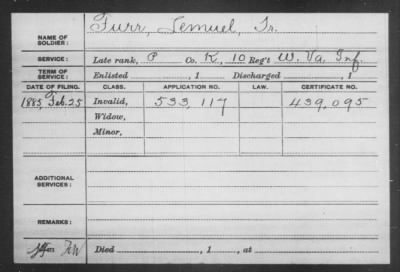 NAME OF SOLDIER: Furr, Lemuel, Sr.
SERVICE: Late rank, P Co. K, 10 Reg't W. Va. Inf.
TERM OF SERVICE: Enlisted , 1 Discharged , 1
DATE OF FILING. CLASS. APPLICATION NO. LAW. CERTIFICATE NO.
1885, Feb. 25 Invalid, 533,117 439,095
Widow,
Minor,
ADDITIONAL SERVICES:
REMARKS:
Died , 1 , at